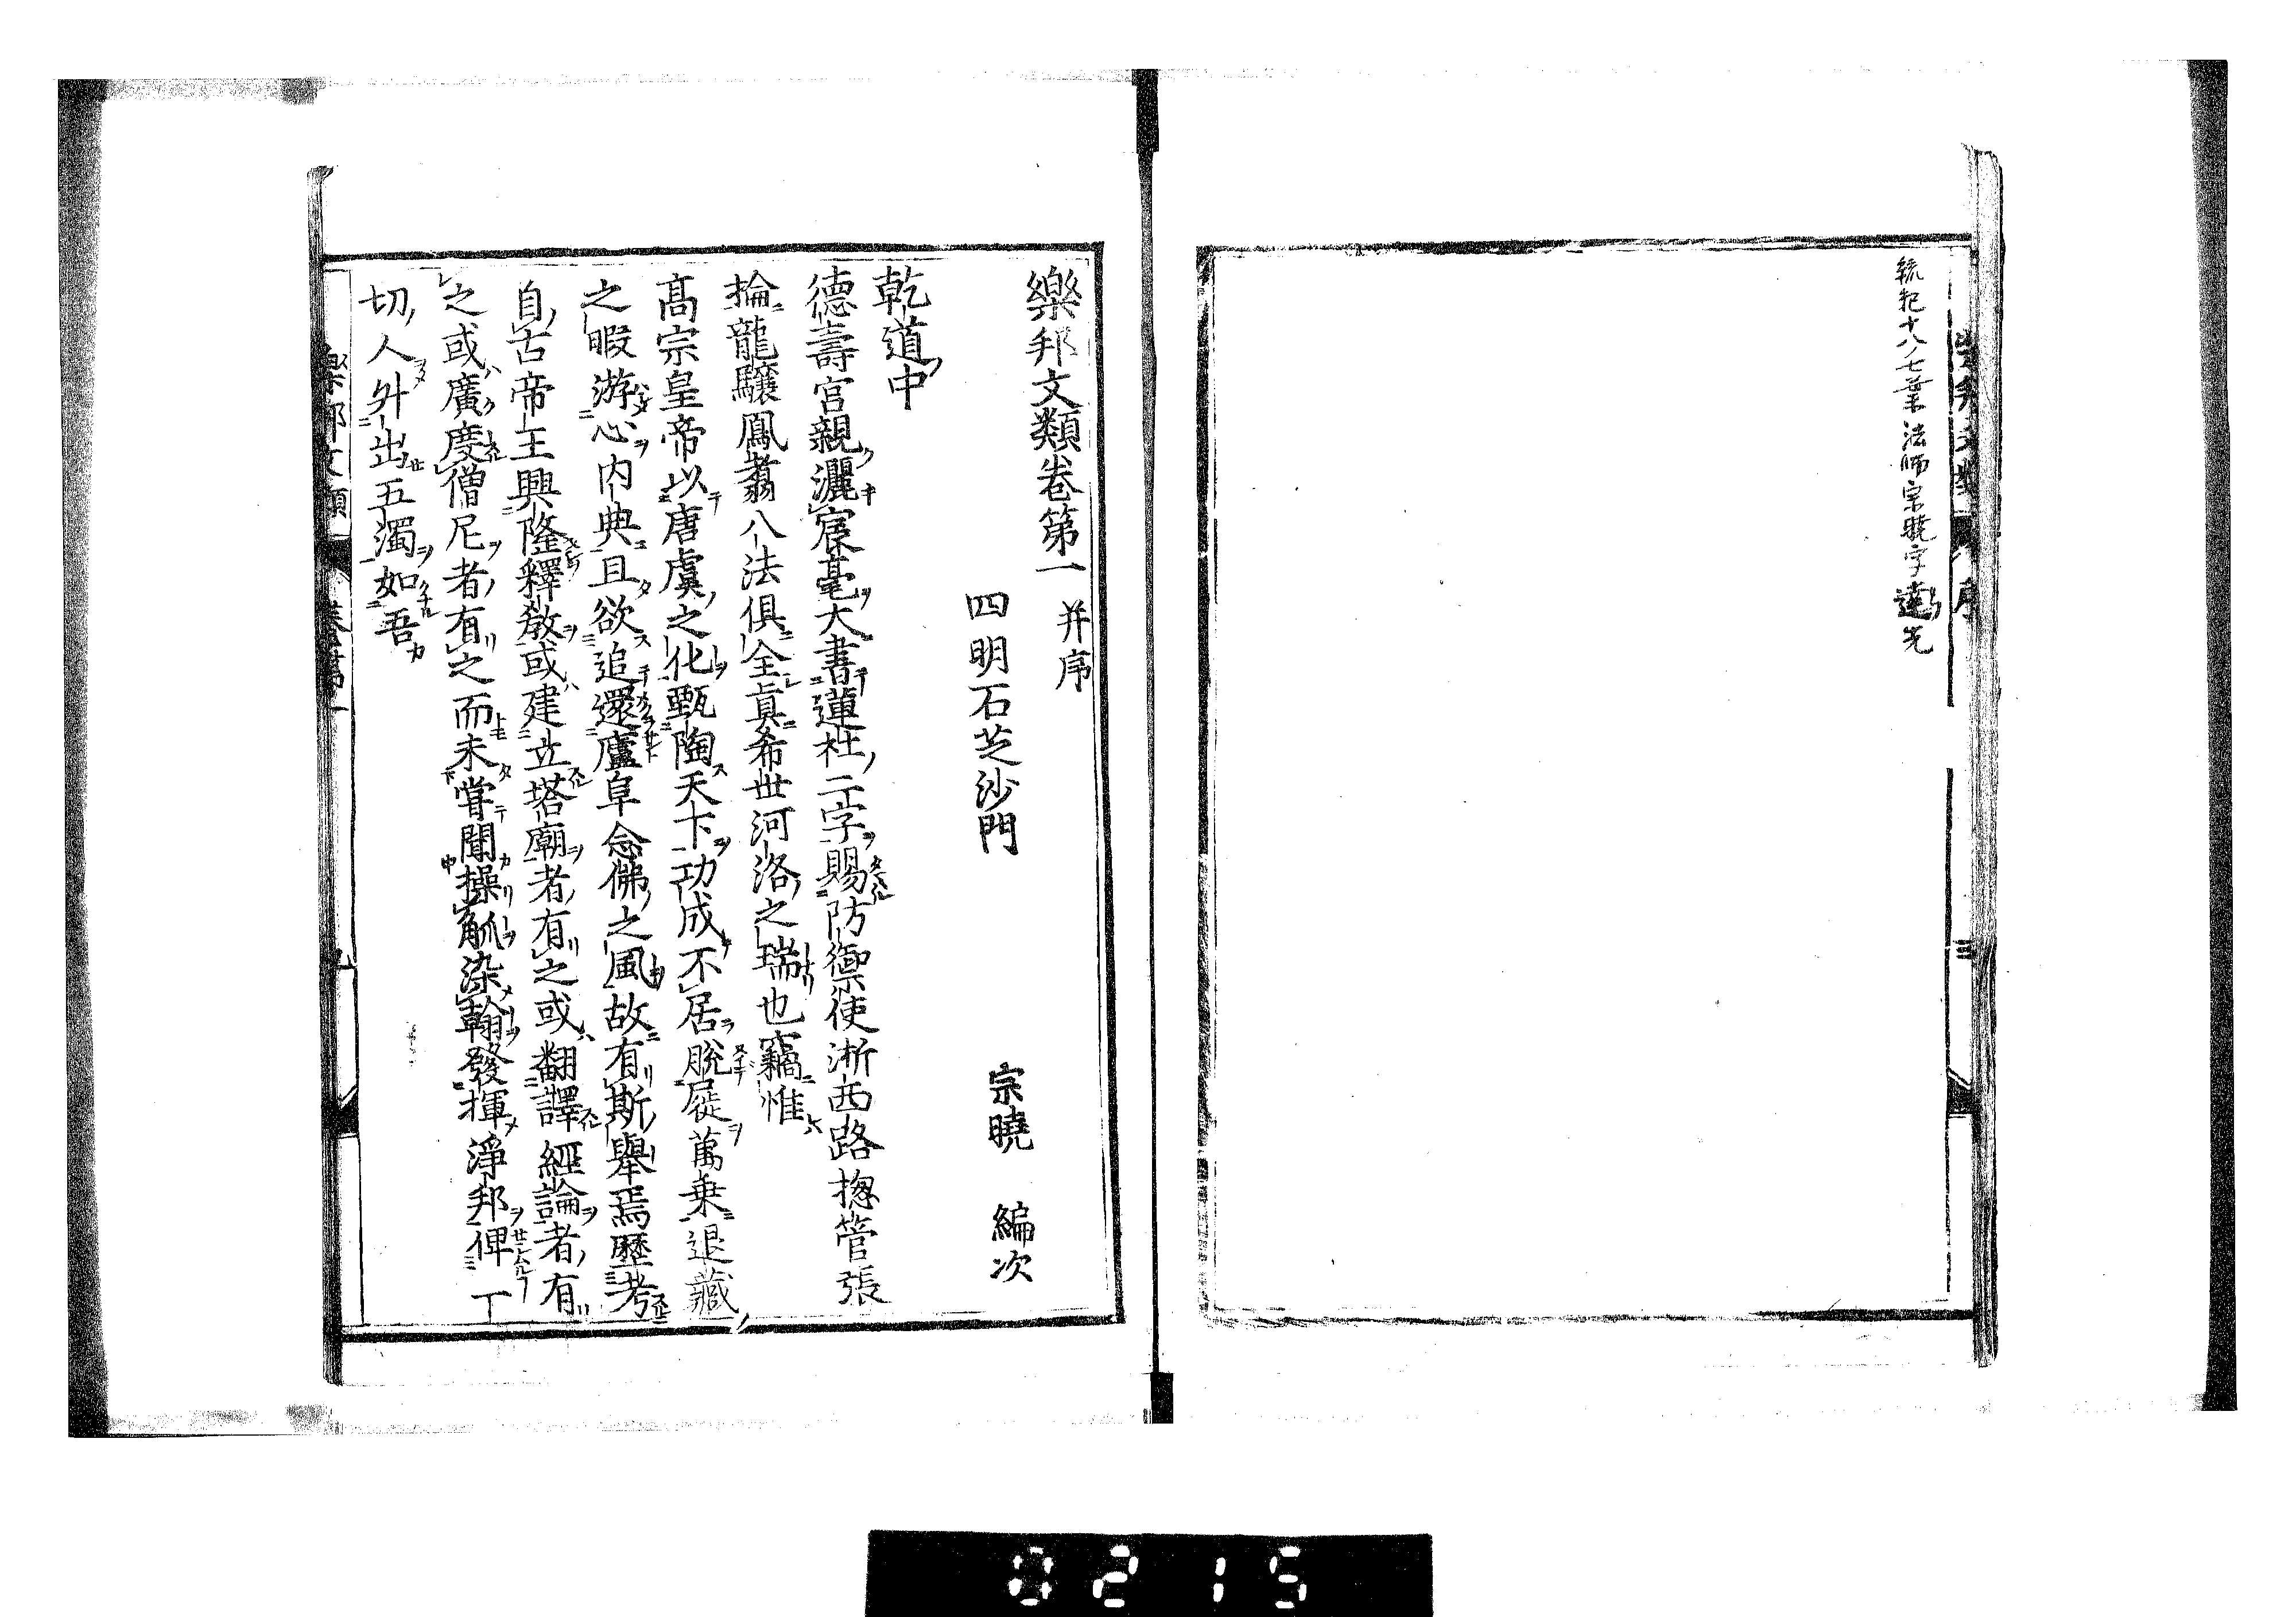 統紀十八ノ七葉 法師宗曉字達先
樂邦文類 序 三
樂邦文類卷第一 并序
四明石芝沙門 宗曉 編次
乾道中
德壽宮親灑宸毫大書蓮社二字賜防禦使浙西路摠管張
掄龍驤鳳翥八法俱全眞希世河洛之瑞也竊惟
髙宗皇帝以唐虞之化甄陶天下功成不居脫屣萬乗退藏
之暇游心内典且欲追還廬阜念佛之風故有斯舉焉歷考
自古帝王興隆釋敎或建立塔廟者有之或翻譯經論者有
之或廣度僧尼者有之而未甞聞操觚染翰發揮淨邦俾一
切人외出五濁如吾
樂邦文類 卷第一
0215